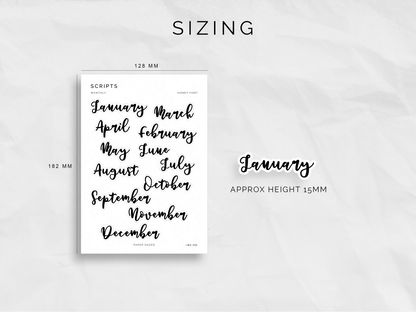 SIZING
128 MM
SCRIPTS
MONTHLY
January
March
April
February
May
June
July
August
October
September
November
December
182 MM
January
APPROX HEIGHT 15MM